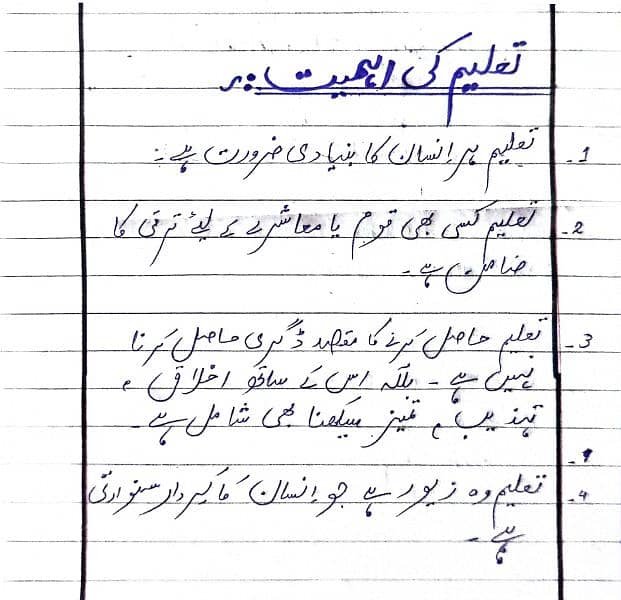 تعلیم کی اہمیت :۔
1۔ تعلیم ہر اِنسان کا بنیادی ضرورت ہے۔
2۔ تعلیم کسی بھی قوم یا معاشرے کے لیئے ترقی کا
ضامن ہے۔
3۔ تعلیم حاصل کرنے کا مقصد ڈگری حاصل کرنا
نہیں ہے۔ بلکہ اس کے ساتھ اخلاق ،
تہذیب ، تمیز سیکھنا بھی شامل ہے۔
4۔ تعلیم وہ زیور ہے جو اِنسان کا کردار سنوارتی
ہے۔